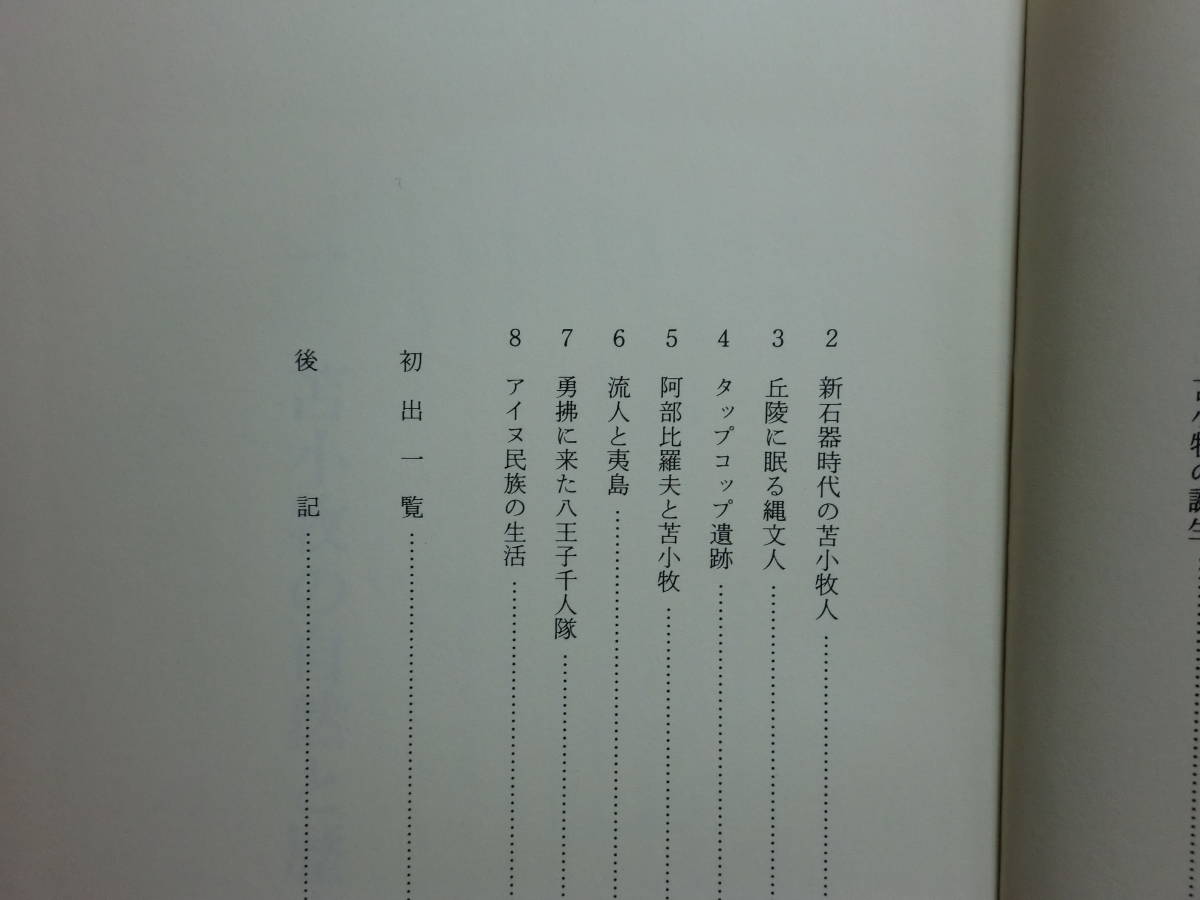 の誕生
2 新石器時代の苫小牧人
3 丘陵に眠る縄文人
4 タップコップ遺跡
5 阿部比羅夫と苫小牧
6 流人と夷島
7 勇拂に来た八王子千人隊
8 アイヌ民族の生活
初出一覧
後記